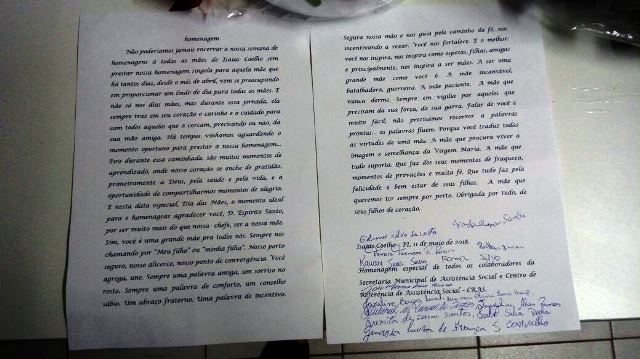 homenagem
Não poderíamos jamais encerrar a nossa semana de
homenagens à todas as mães de Isaías Coelho sem
prestar nossa homenagem singela para aquela mãe que
há tantos dias, desde o mês de abril, vem se preocupando
em proporcionar um lindo de dia para todas as mães. E
não só nos dias mães, mas durante esta jornada, ela
sempre traz em seu coração o carinho e o cuidado para
com todos aqueles a cercam, precisando ou não, da
sua mão amiga. Há tempos vínhamos aguardando o
momento oportuno para prestar a nossa homenagem...
Pois durante essa caminhada, são muitos momentos de
aprendizado, onde nosso coração se enche de gratidão,
primeiramente a Deus, pela saúde e pela vida, e a
oportunidade de compartilharmos momentos de alegria.
E nesta data especial, Dia das Mães, o momento ideal
para e homenagear agradecer você, D. Espírito Santo,
por ser muito mais do que nossa chefe, ser a nossa mãe.
Sim, você é uma grande mãe pra todos nós. Sempre nos
chamando por "Meu filho" ou "minha filha". Nosso porto
seguro, nosso alicerce, nosso ponto de convergência. Você
agrega, une. Sempre uma palavra amiga, um sorriso no
rosto. Sempre uma palavra de conforto, um conselho
sábio. Um abraço fraterno. Uma palavra de incentivo.
Segura nossa mão e nos guia pelo caminho da fé, nos
incentivando a rezar. Você nos fortalece. E o melhor:
você nos inspira, nos inspira como esposas, filhas, amigas
e principalmente, nos inspira a ser mães. A ser uma
grande mãe como você é. A mãe incansável,
batalhadora, guerreira. A mãe paciente. A mãe que
nunca dorme. Sempre em vigília por aqueles que
precisam da sua força, da sua garra. Falar de você é
muito fácil, não precisamos recorrer a palavras
prontas... as palavras fluem. Porque você traduz todas
as virtudes de uma mãe. A mãe que procura viver a
imagem e semelhança da Virgem Maria. A mãe que
tudo suporta. Que faz dos seus momentos de fraqueza,
momentos de provações e muita fé. Que tudo faz pela
felicidade e bem estar de seus filhos. A mãe que
queremos ter sempre por perto. Obrigada por tudo, de
seus filhos de coração.
Isaías Coelho, PI, 11 de maio de 2018.
Silva
Homenagem especial de todos os colaboradores da
Secretaria Municipal de Assistência Social e Centro de
Referência de Assistência Social - CRAS.
santos Silva
Carvalho